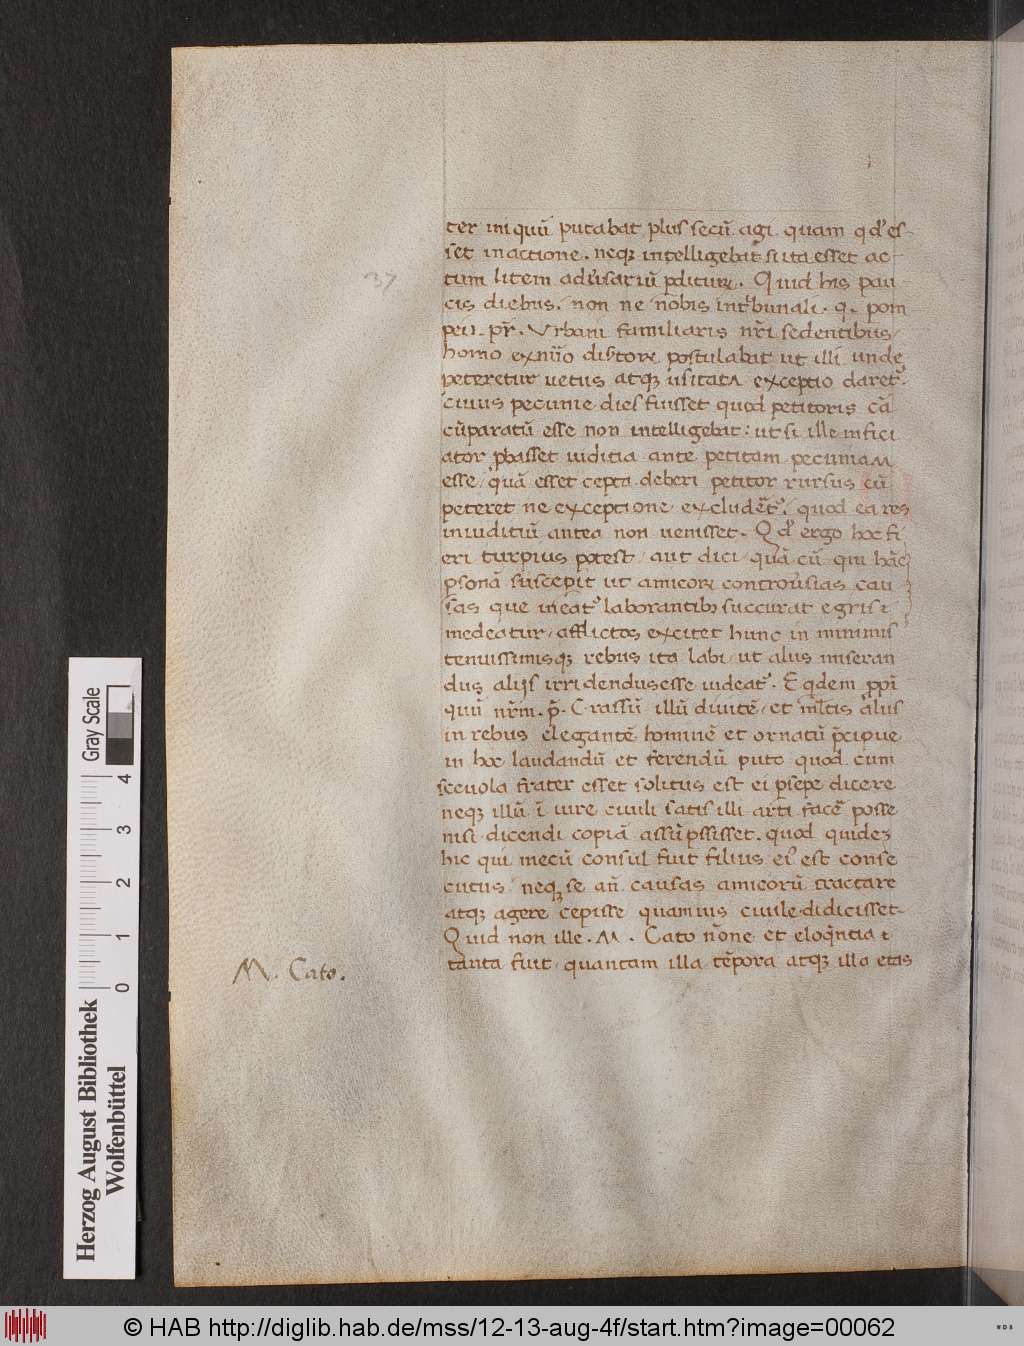 ter iniquū putabat plus secū agi quam qd' es-
set in actione. neqꝫ intelligebat si ita esset ac-
tum litem aduersariū pditurū. Quid his pau
cis diebus. non ne nobis in tribunali. q. pom
peii. pr̄. Vrbani familiaris nr̄i sedentibus
homo ex nūo disertorꝝ postulabat ut illi unde
peteretur uetus atqꝫ usitata exceptio daret᷑.
cuius pecunie dies fuisset quod petitoris cā
cūparatū esse non intelligebat: ut si ille infici
ator pbasset iuditio ante petitam pecuniam
esse quā esset cepta deberi petitor rursus cū
peteret ne exceptione excluderet᷑. quod ea res
in iuditiū antea non uenisset. Qd' ergo hoc fi
eri turpius potest aut dici quā cū qui hāc
psonā susceperit ut amicorꝝ controuersias cau
sas que ineat laborantibꝫ succurat egris
medeatur afflictos excitet hunc in minimis
tenuissimisqꝫ rebus ita labi ut aliis miseran
dus aliis irridendus esse uideat᷑. Eqdem ppī
quū nr̄m. p. Crassū illū diuitē et mltis aliis
in rebus elegantē hominē et ornatū p̄cipue
in hoc laudandū et ferendū puto quod cum
scęuola frater esset solitus est ei psepe dicere
neqꝫ illū ī iure ciuili satis illi arti facē posse
nisi dicendi copiā assūpsisset. quod quidez
hic qui mecū consul fuit filius ei᷑ est conse
cutus neqꝫ se an̄ causas amicorū tractare
atqꝫ agere cepisse quam ius ciuile didicisset.
Quid non ille. M. Cato nōne et eloqntia
tanta fuit quantam illa tēpora atqꝫ illa etas
M. Cato.
37
Gray Scale
4
3
2
1
0
Herzog August Bibliothek
Wolfenbüttel
© HAB http://diglib.hab.de/mss/12-13-aug-4f/start.htm?image=00062